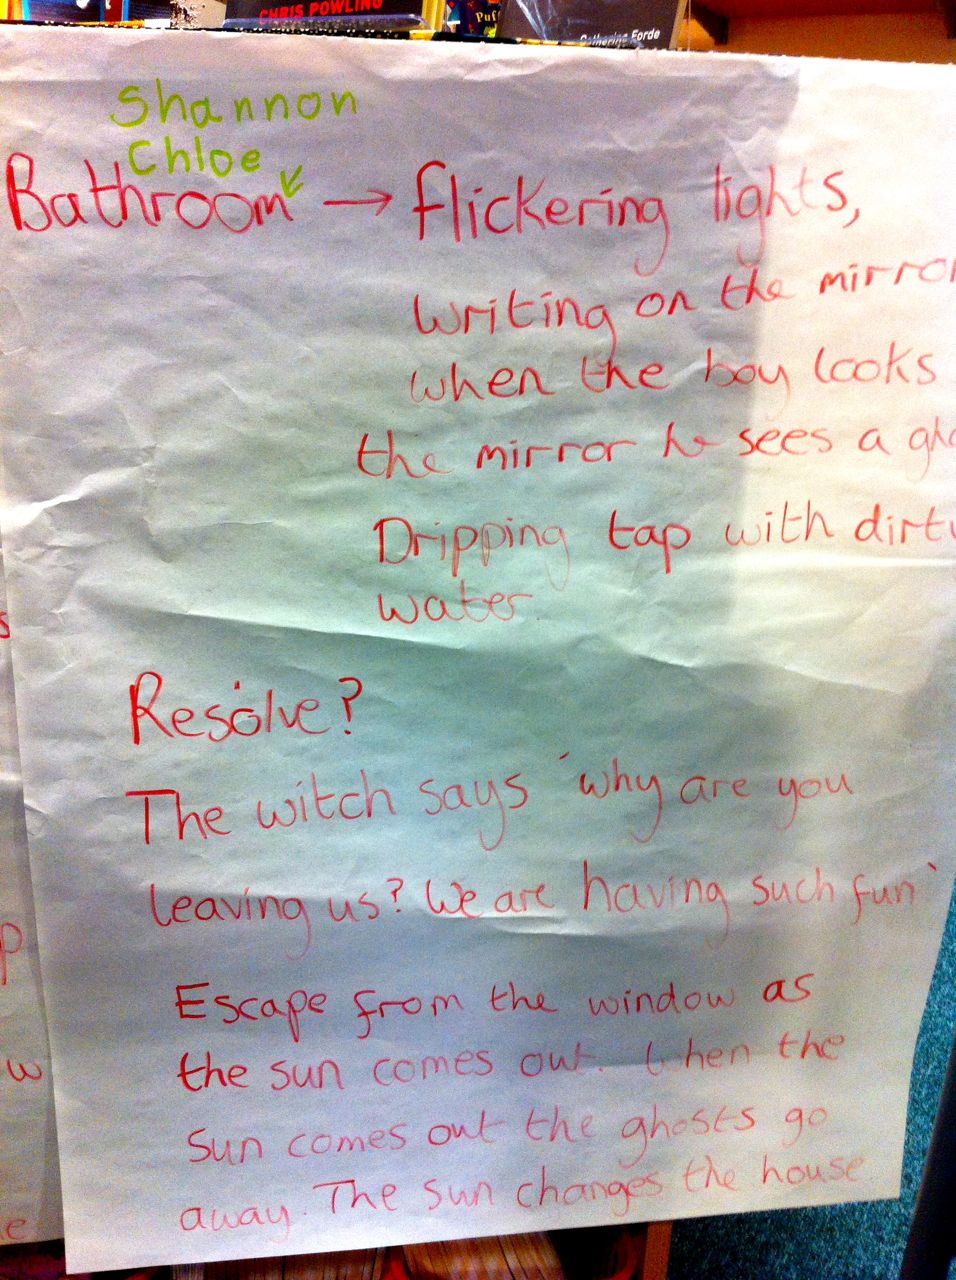 CHRIS POWLING
Puf
Catherine Forde
Shannon
Chloe
Bathroom → flickering lights,
writing on the mirror
when the boy looks
the mirror he sees a gho
Dripping tap with dirty
water.
Resolve?
The witch says 'why are you
leaving us? We are having such fun'
Escape from the window as
the sun comes out. When the
sun comes out the ghosts go
away. The sun changes the house
s
p
w
e